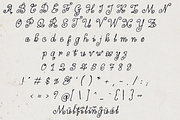 A B C D E F G H I J K L M N
O P Q R S T U V W X Y Z
a b c d e f g h i j k l m n o
p q r s t u v w y z
0 1 2 3 4 5 6 7 8 9
! " # $ % & ' ( ) * + , - . / : ;
< = > ? @ [ \ ] ^ _ ` { | } ~
Multilingual